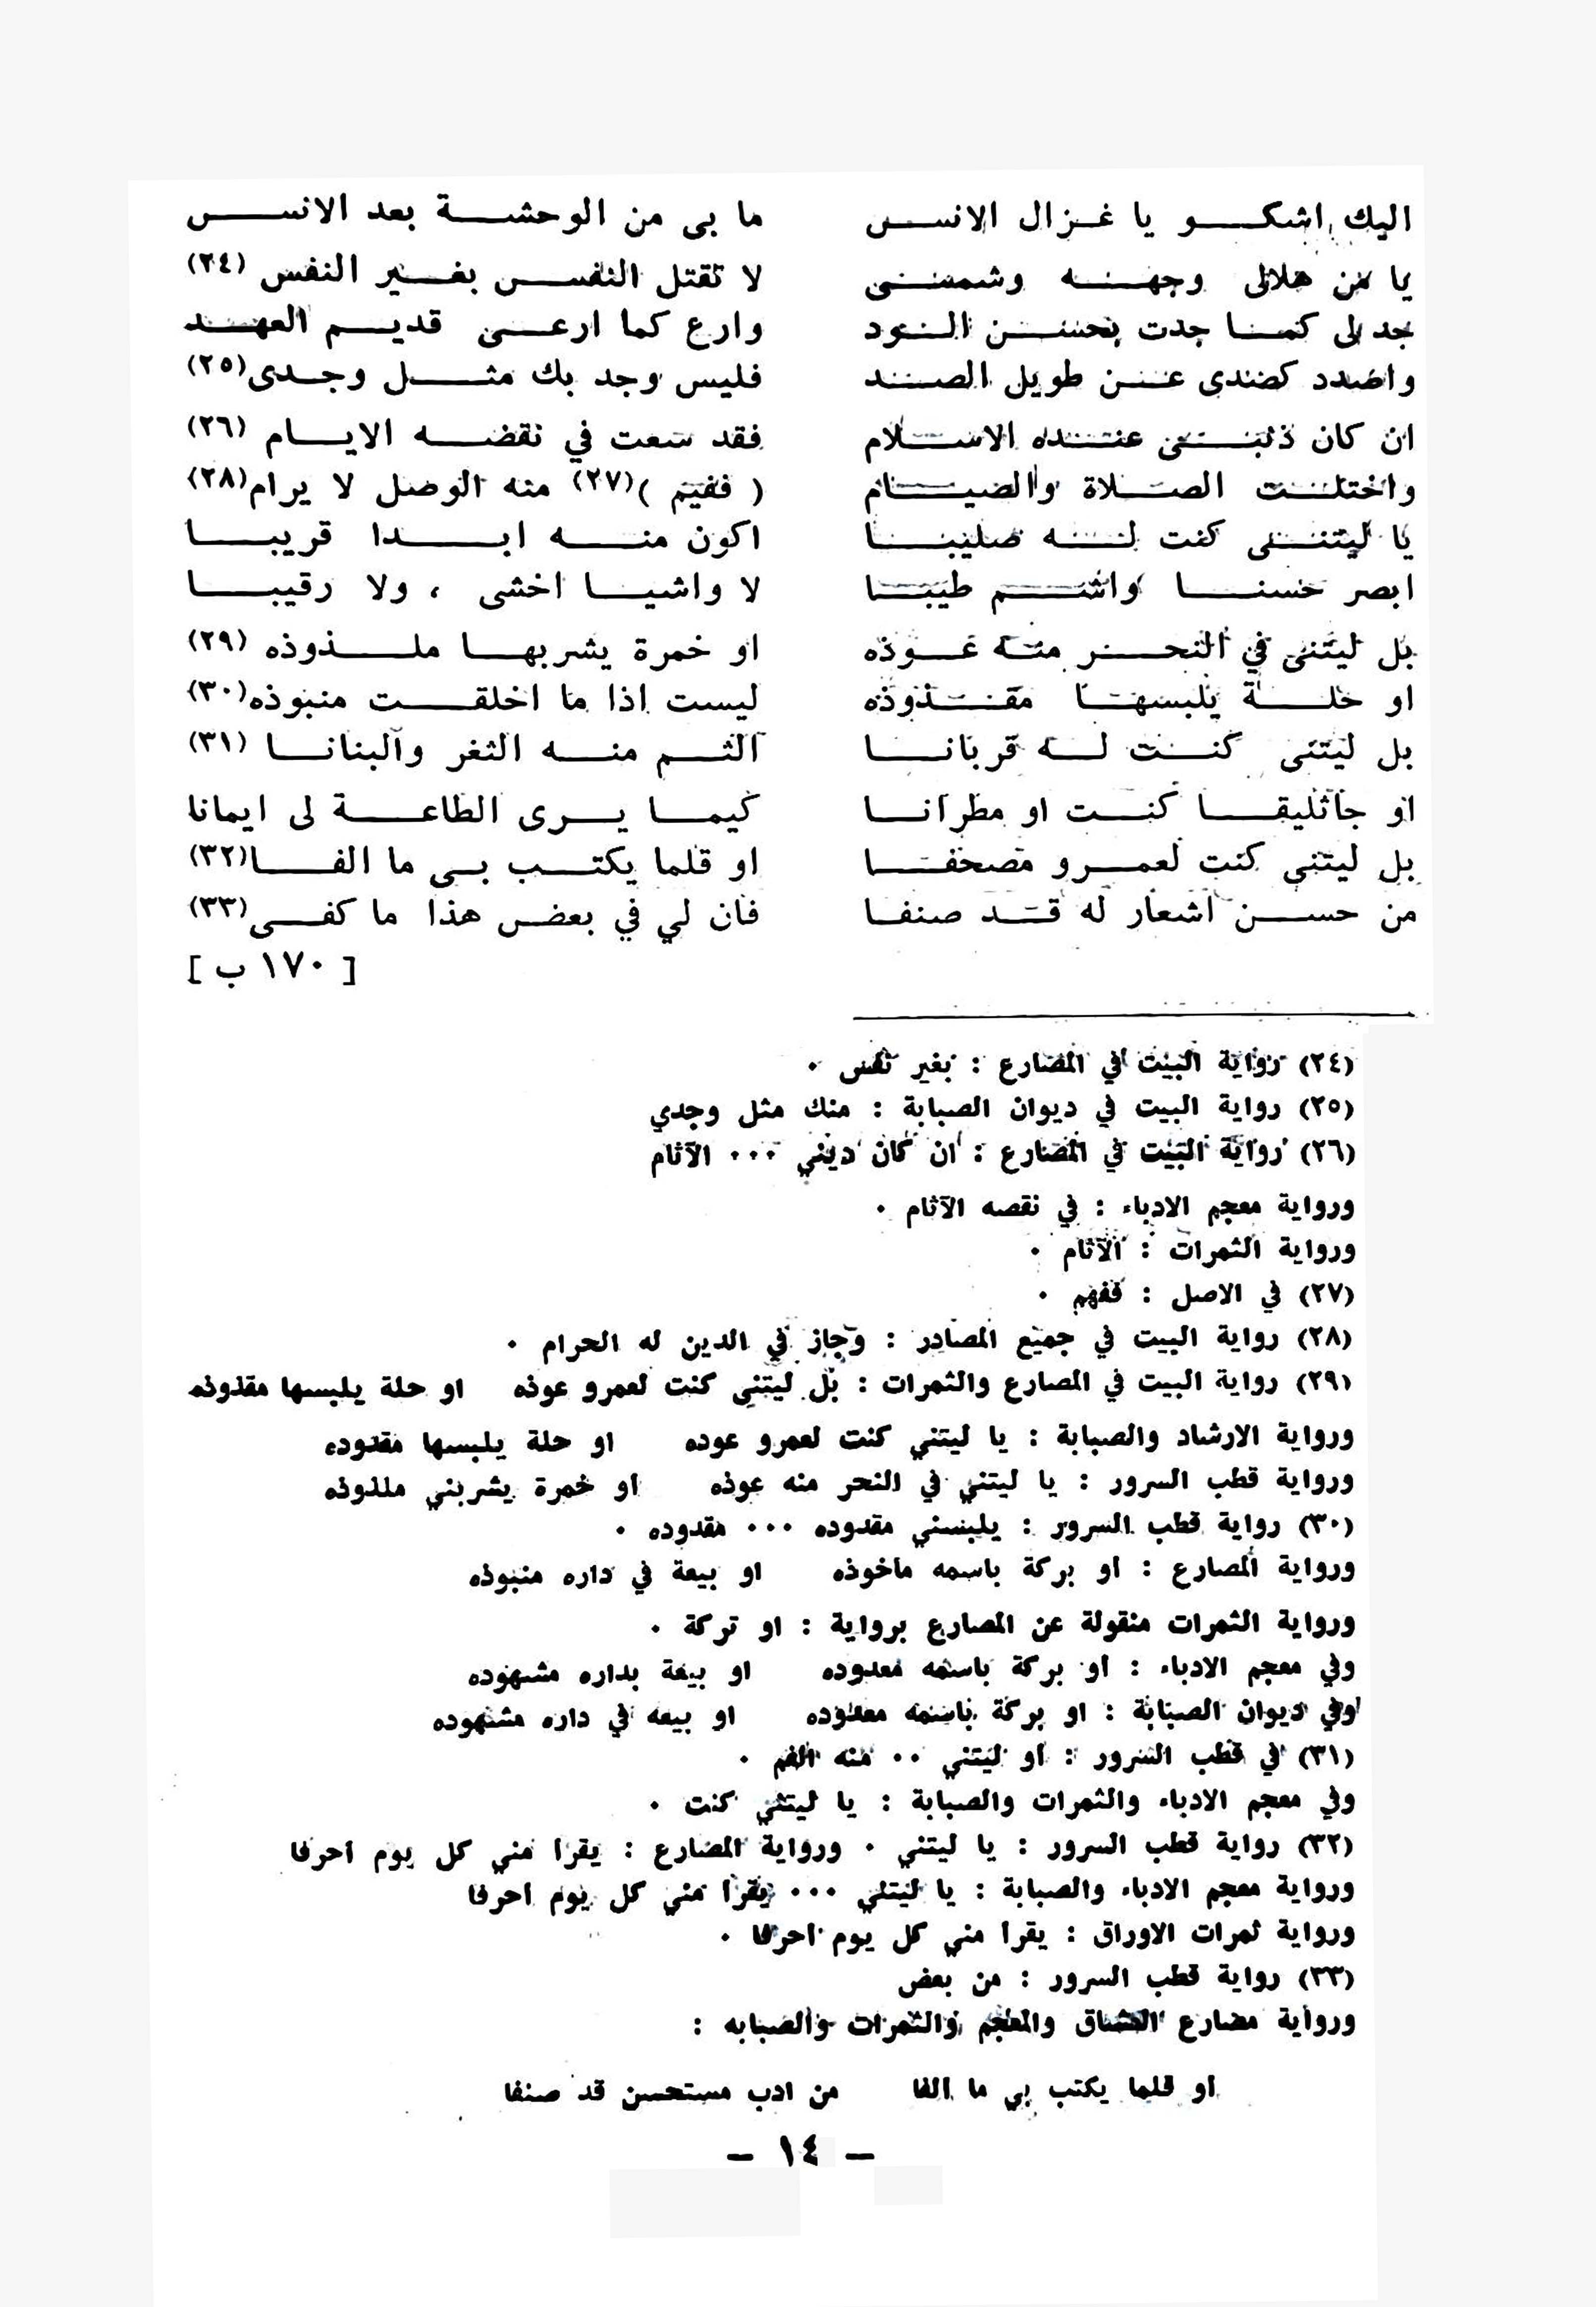 اليك اشكو يا غزال الانس ما بى من الوحشة بعد الانس
يا من هلالى وجهه وشمسى لا تقتل النفس بغير النفس (٢٤)
جد لى كما جدت بحسن الود وارع كما ارعى قديم العهد
واصدد كصدى عن طويل الصد فليس وجد بك مثل وجدى (٢٥)
ان كان ذنبى عنده الاسلام فقد سعت في نقضه الايام (٢٦)
واختلت الصلاة والصيام ( ففيم ) (٢٧) منه الوصل لا يرام (٢٨)
يا ليتنى كنت له صليبا اكون منه ابدا قريبا
ابصر حسنا واشم طيبا لا واشيا اخشى ، ولا رقيبا
بل ليتنى في النحر منه عوذه او خمرة يشربها ملذوذه (٢٩)
او حلة يلبسها مقذوذه ليست اذا ما اخلقت منبوذه (٣٠)
بل ليتنى كنت له قربانا الثم منه الثغر والبنانا (٣١)
او جاثليقا كنت او مطرانا كيما يرى الطاعة لى ايمانا
بل ليتنى كنت لعمرو مصحفا او قلما يكتب بى ما الفا (٣٢)
من حسن اشعار له قد صنفا فان لي في بعض هذا ما كفى (٣٣)
[ ١٧٠ ب ]
(٢٤) رواية البيت في المصارع : بغير نفس .
(٢٥) رواية البيت في ديوان الصبابة : منك مثل وجدي
(٢٦) رواية البيت في المصارع : ان كان ديني ... الآثام
ورواية معجم الادباء : في نقصه الآثام .
ورواية الثمرات : الآثام .
(٢٧) في الاصل : ففهم .
(٢٨) رواية البيت في جميع المصادر : وجاز في الدين له الحرام .
(٢٩) رواية البيت في المصارع والثمرات : بل ليتنى كنت لعمرو عوذه او حلة يلبسها مقذوذه
ورواية الارشاد والصبابة : يا ليتني كنت لعمرو عوده او حلة يلبسها مقدوده
ورواية قطب السرور : يا ليتني في النحر منه عوذه او خمرة يشربني ملذوذه
(٣٠) رواية قطب السرور : يلبسني مقدوده ... مقدوده .
ورواية المصارع : او بركة باسمه ماخوذه او بيعة في داره منبوذه
ورواية الثمرات منقولة عن المصارع برواية : او تركة .
وفي معجم الادباء : او بركة باسمه معدوده او بيعة بداره مشهوده
وفي ديوان الصبابة : او بركة باسمه معدوده او بيعه في داره مشهوده
(٣١) في قطب السرور : او ليتني .. منه الفم .
وفي معجم الادباء والثمرات والصبابة : يا ليتني كنت .
(٣٢) رواية قطب السرور : يا ليتني . ورواية المصارع : يقرا مني كل يوم احرفا
ورواية معجم الادباء والصبابة : يا ليتني ... يقرا مني كل يوم احرفا
ورواية ثمرات الاوراق : يقرا مني كل يوم احرفا .
(٣٣) رواية قطب السرور : من بعض
ورواية مصارع العشاق والمعجم والثمرات والصبابه :
او قلما يكتب بي ما الفا من ادب مستحسن قد صنفا
– ١٤ –